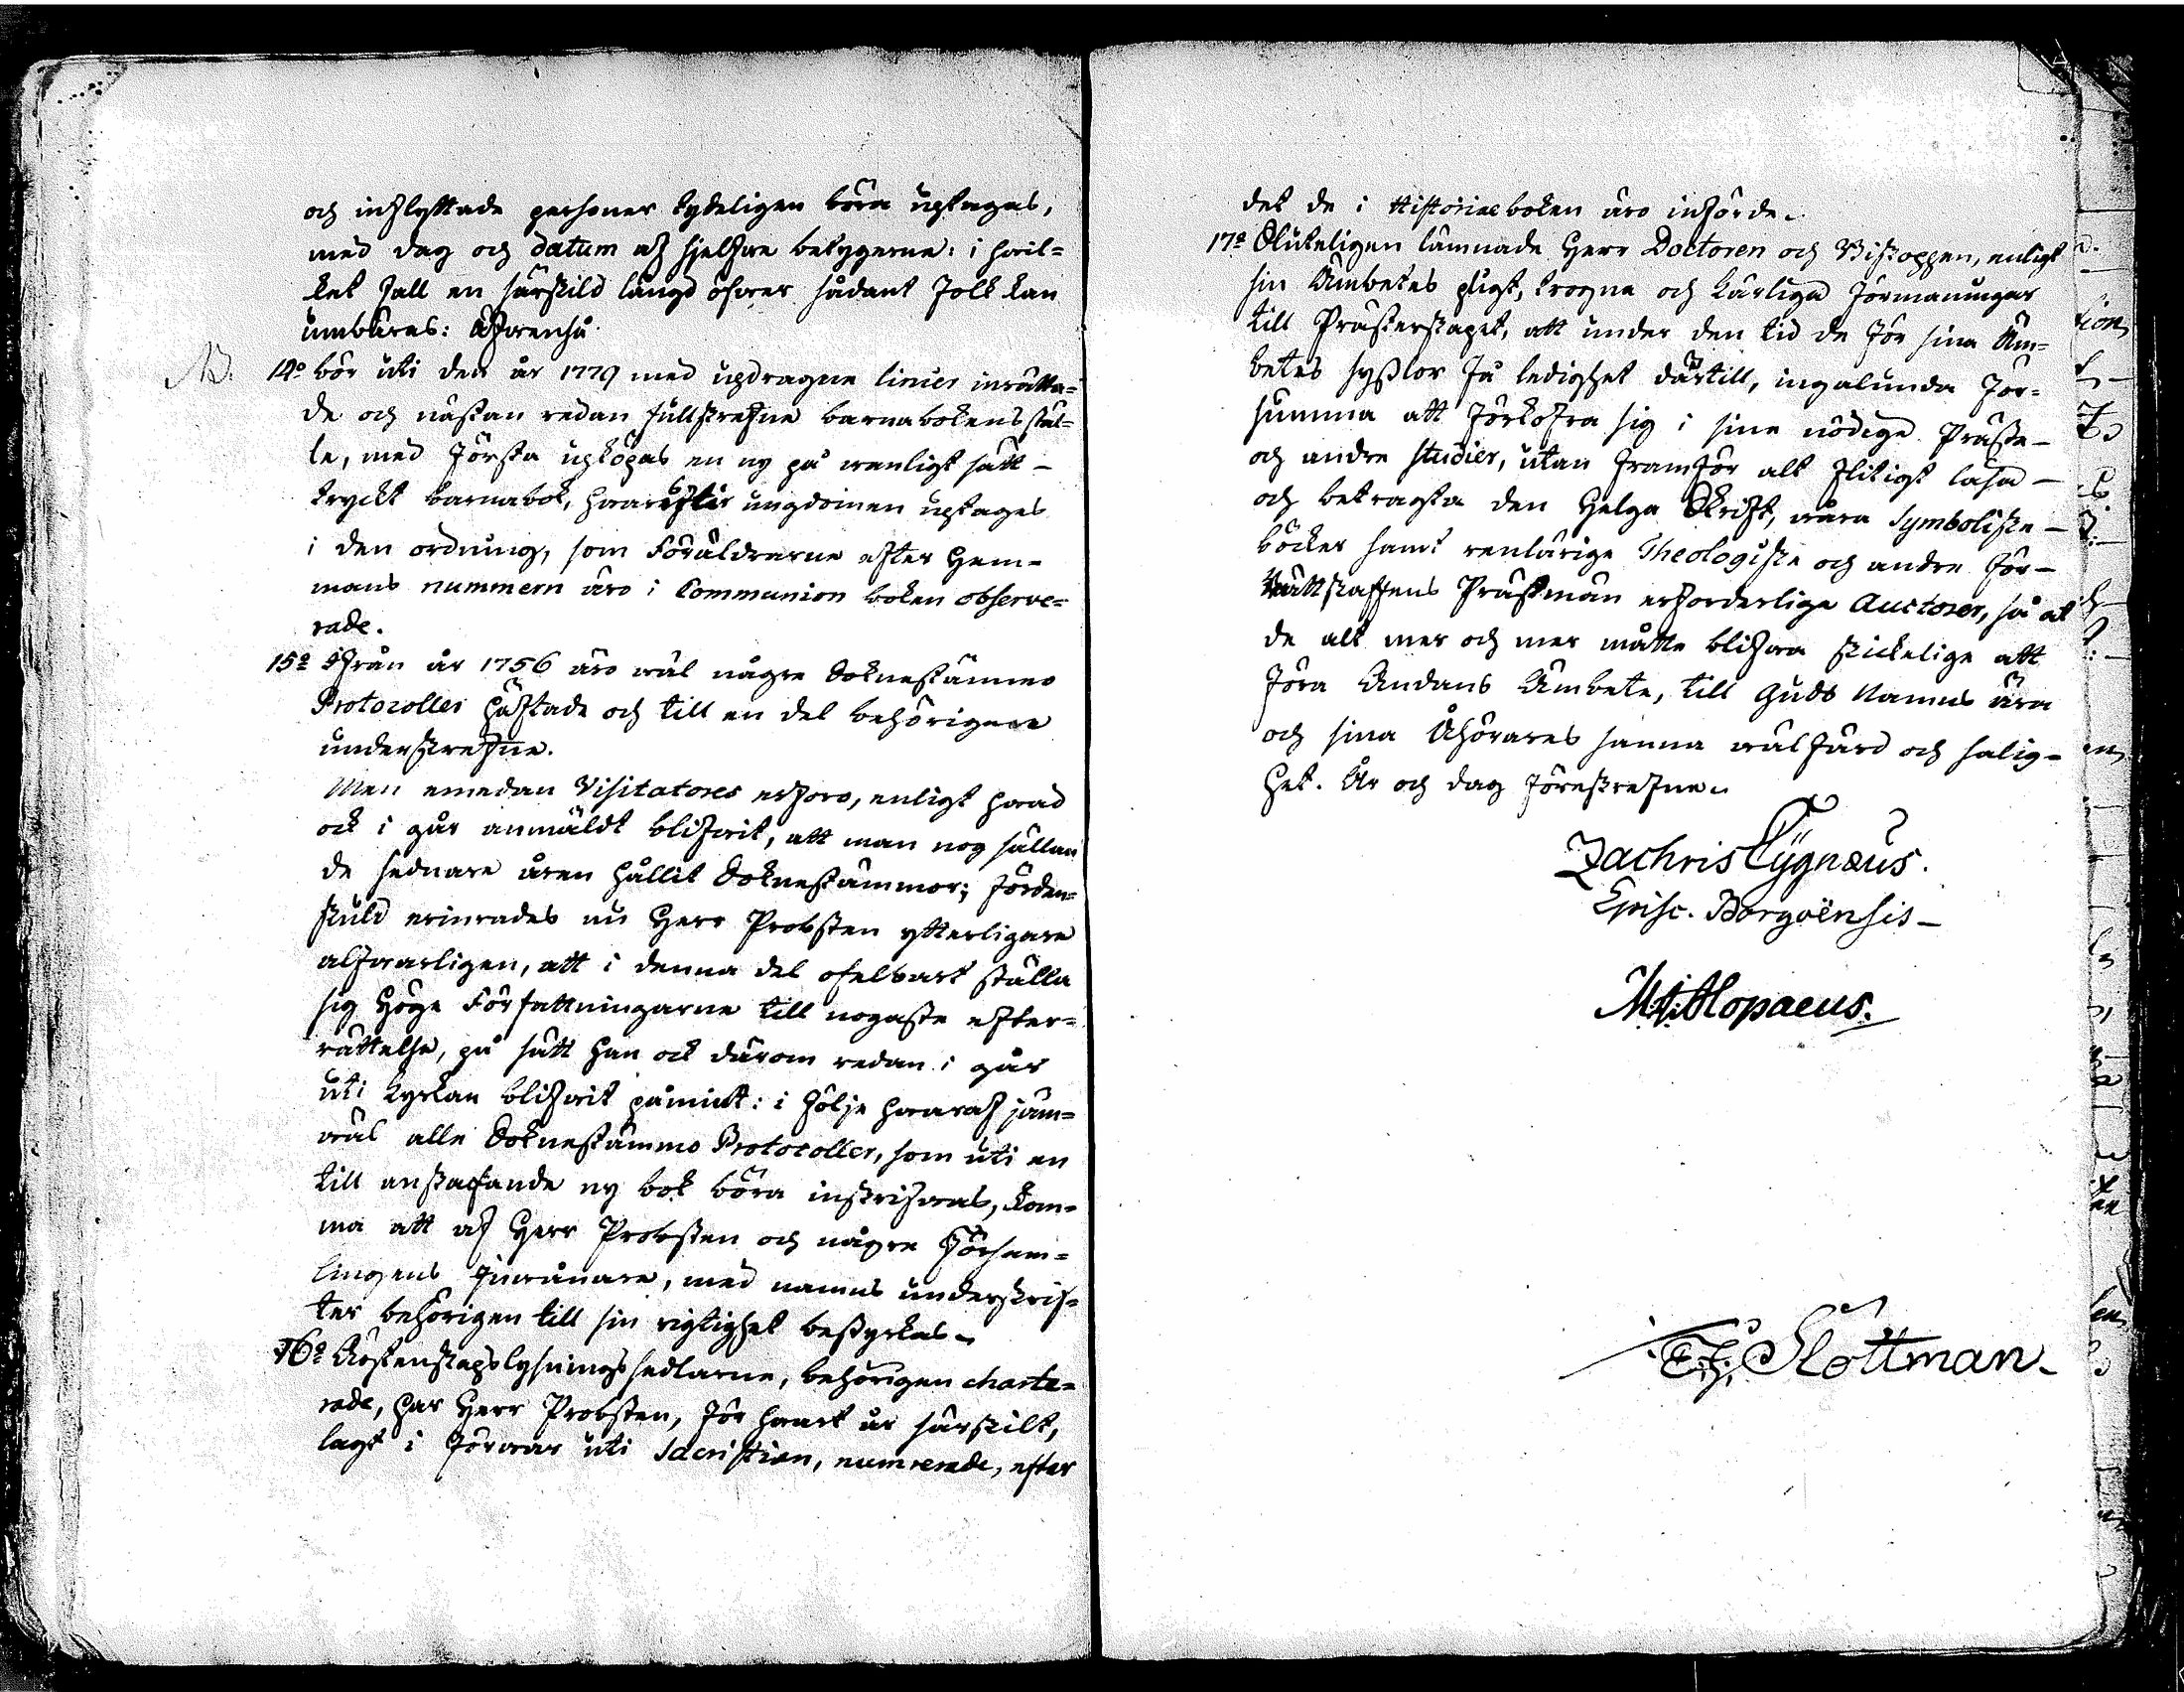 och inflyttade personer tydeligen böra uptagas,
med dag och datum af sjelfwa betygerne: i hwil-
ket fall en särskild längd öfwer sådant folk kan
umbäras: Äfwenså
NB. 14o bör uti den år 1779 med updragne linier inrätta-
de och nästan redan fullskrefne barnabokens stäl-
le, med första upköpas en ny på wanligt sätt
tryckt barnabok, hwarefter ungdomen uptages
i den ordning, som Föräldrarne efter Hem-
mans nummern äro i Communion boken observe-
rade.
15o Ifrån år 1756 äro wäl någre Soknestämmo
Protocoller häftade och till en del behörigen
underskrefne.
Men emedan Visitatores erforo, enligt hwad
ock i går anmäldt blifwit, att man nog sällan
de sednare åren hållit Soknestämmor; förden-
skuld erinrades nu Herr Probsten ytterligare
alfwarligen, att i denna del ofelbart ställa
sig Höga Författningarne till nogaste efter-
rättelse, på sätt han ock därom redan i går
uti Kyrkan blifwit påmint: i följe hwaraf jäm-
wäl alle Soknestämmo Protocoller, som uti en
till anskaffande ny bok böra inskrifwas, kom-
ma att af Herr Probsten och någre Försam-
lingens Inwånare, med namns underskrif-
ter behörigen till sin rigtighet bestyrkas
16o Äktenskapslysningssedlarne, behörigen charte-
rade, har Herr Probsten, för hwart år särskilt,
lagt i förwar uti Sacristian, numrerade, efter
det de i Historiae boken äro införde.
17o Sluteligen lämnade Herr Doctoren och Biskoppen, enligt
sin Ämbetes pligt, trogna och kärliga förmaningar
till Prästerskapet, att under den tid de för sina Äm-
betes sysslor få ledighet därtill, ingalunda för-
summa att förkofra sig i sina nödige Präste-
och andre studier, utan framför alt flitigt läsa
och betragta den Helga Skrift, wåra Symboliske
böcker samt renlärige Theologiske och andre för
Rättskaffens Prästmän erforderlige Auctorer, så at
de alt mer och mer måtte blifwa skickelige att
föra Andans Ämbete, till Guds Namns ära
och sina Åhörares sanna wälfärd och salig-
het. År och dag förenskrefne.
Zachris Cygnæus.
Episc. Borgoënsis
M. Alopaeus.
Slottman